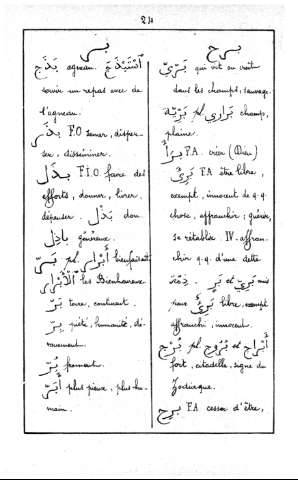 24
بــر
بَذَج agneau. اسْتَبْذَجَ
servir un repas avec de
l'agneau.
بذر F.O semer, disper-
ser, disséminer.
بذل F.I.O faire des
efforts, donner, livrer,
dépenser. بَذْل don.
باذِل généreux.
بَرّ pl أَبْرار bienfaisant
الأَبْرار les Bienheureux
بَرّ terre, continent.
بِرّ piété, humanité, dé-
vouement.
بُرّ froment.
أَبَرّ plus pieux, plus hu-
main.
برح
بَرّيّ qui vit ou croît
dans les champs, sauvage.
بَرّيّة pl بَراري champ,
plaine.
بَرَأ F.A. créer (Dieu)
بَرِئ F.A être libre,
exempt, innocent de q.q.
chose, affranchir; guérir,
se rétablir. IV. affran-
chir q.q. d'une dette
et
libre, exempt
affranchi, innocent.
بُرْج pl بُرُوج et أَبْراج
fort, citadelle, signe du
Zodiaque.
برح F.A cesser d'être,